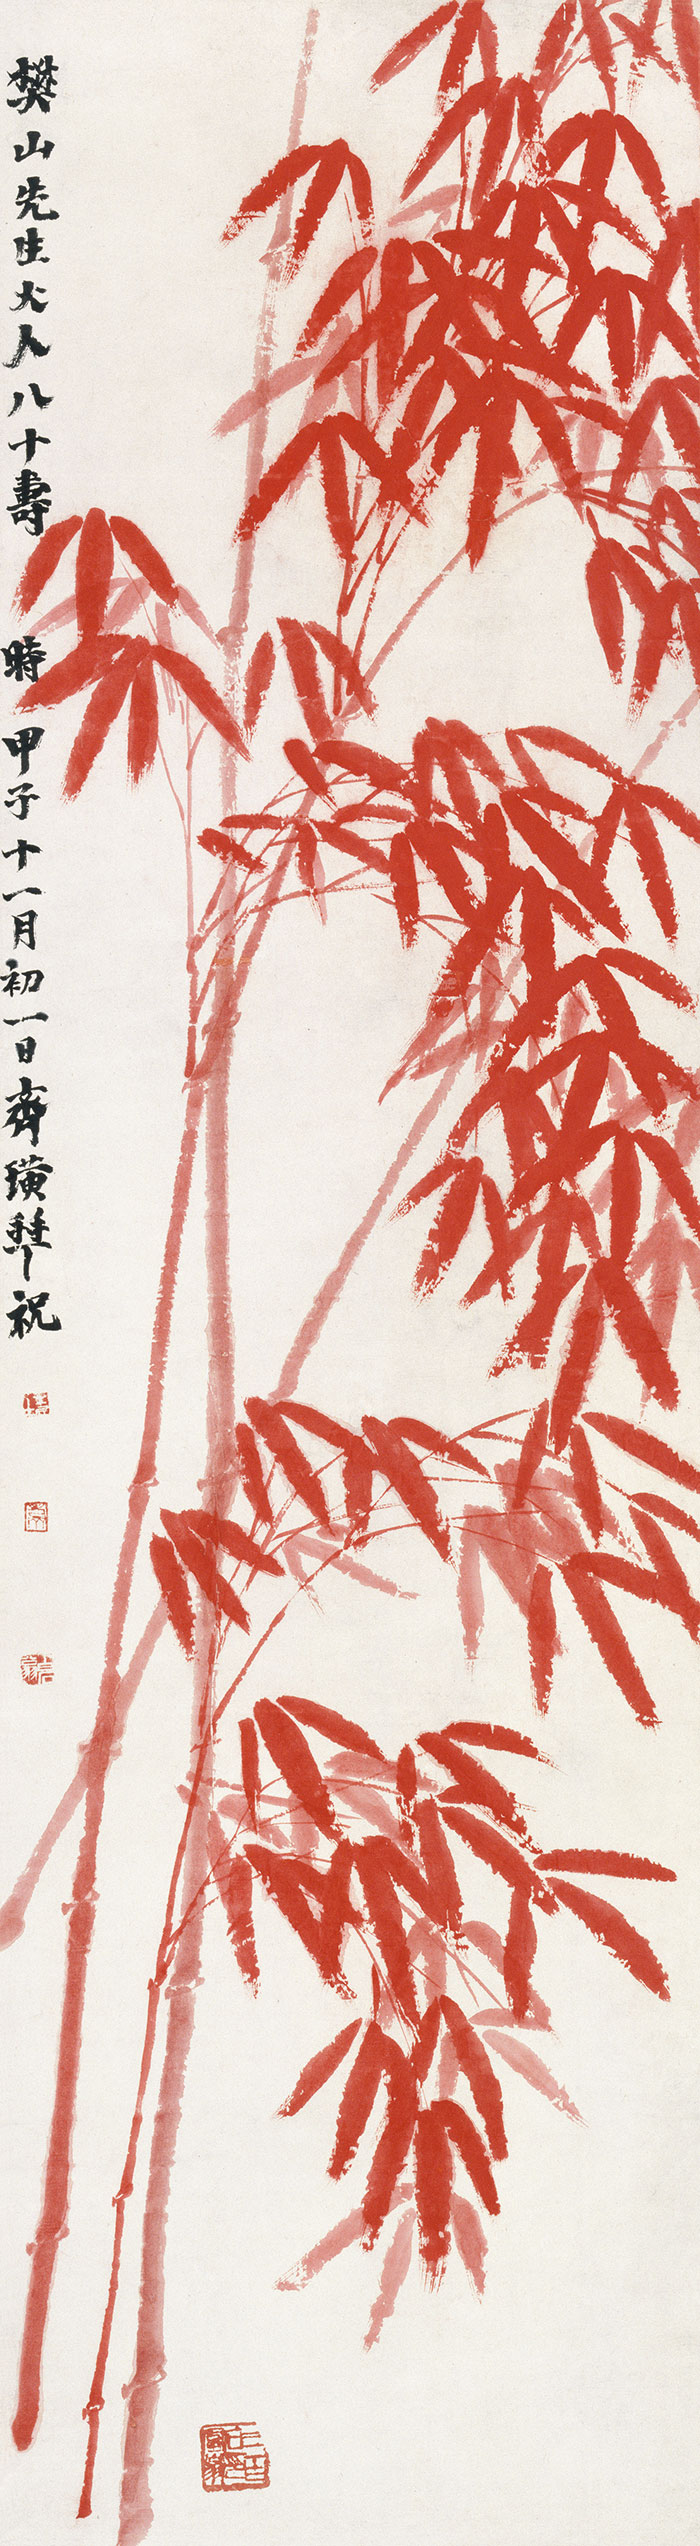 樊山先生大人八十壽 時 甲子十一月初一日齊璜拜祝